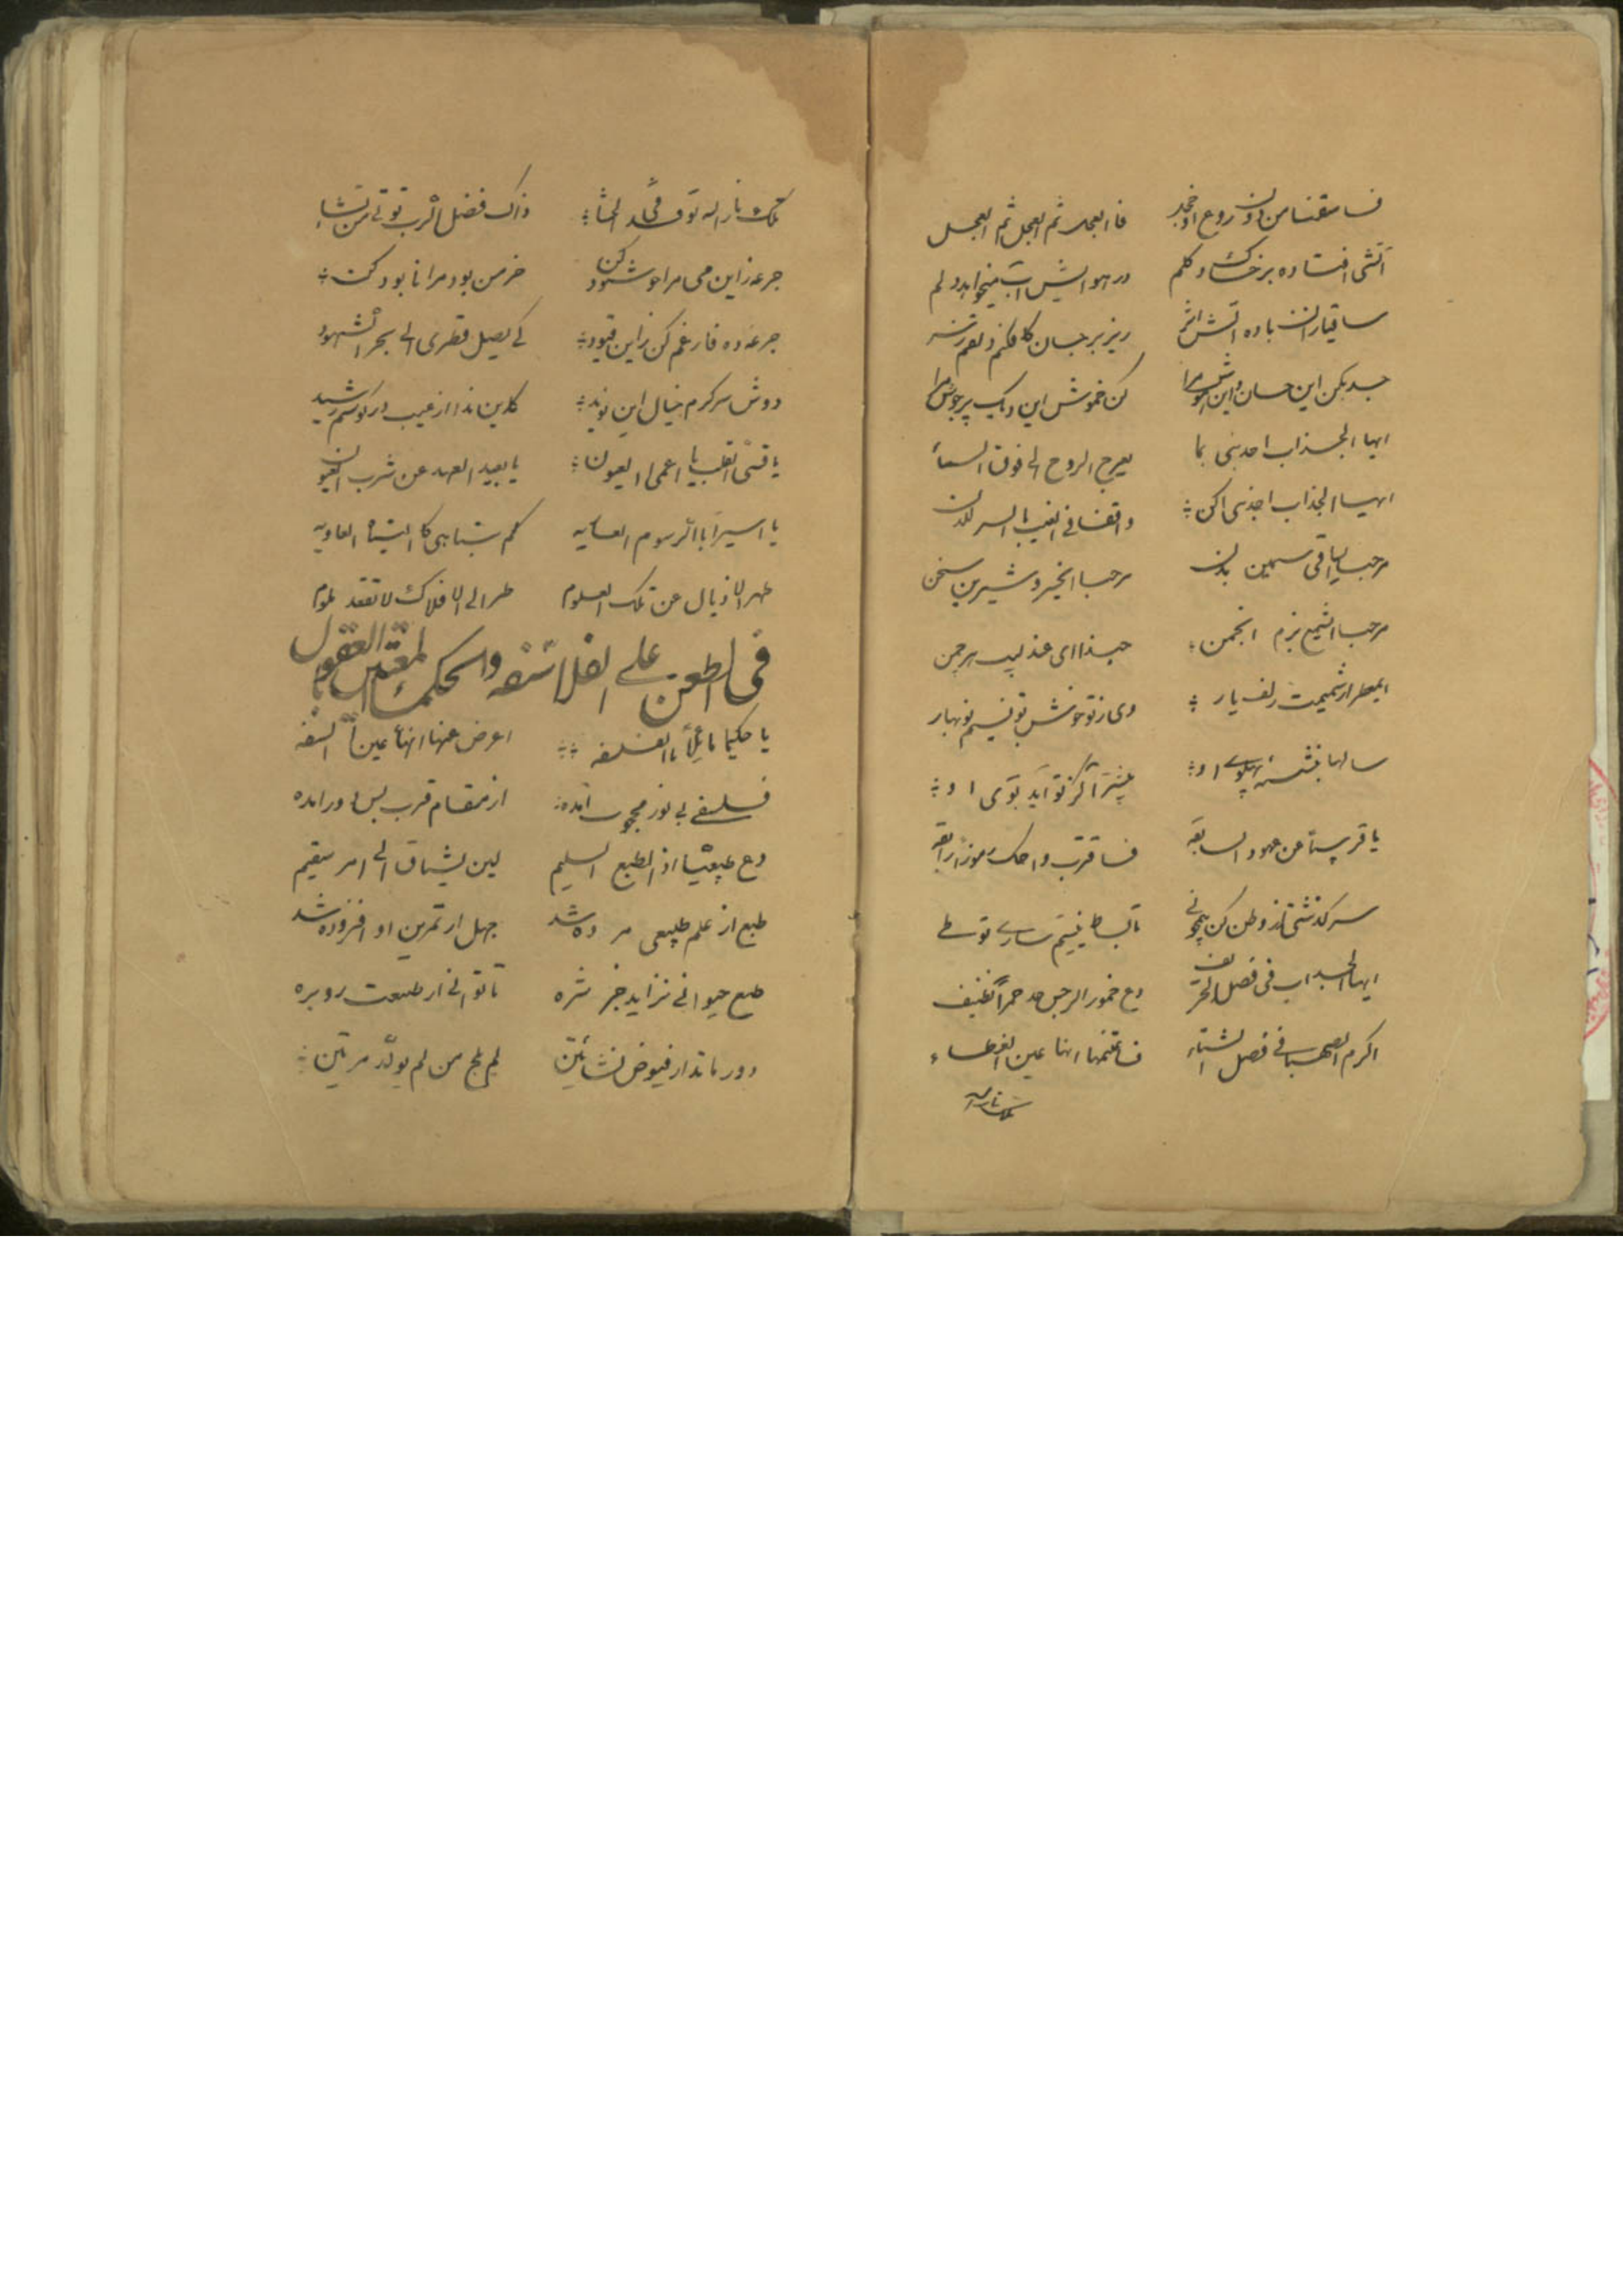 فاسقنا من دون روع او خجل فا العجل ثم العجل ثم العجل
آتشی افتاده بر خاک و گلم در هوایش آب میخواهد دلم
ساقیا زان باده آتش اثر ریز بر جان
جذب کن این جان مرا کن خموش این دیک پر جوش مرا
ایها الجذاب اجذبنی بما یعرج الروح الی فوق السمأ
ایها الجذاب اجذبنی اکن واقفا فی الغیب بالسر لدن
مرحبا ساقی سیمین بدن مرحبا شیرین سخن
مرحبا ای شمع بزم انجمن حبذا ای عندلیب هر چمن
ایمعطر از شمیمت زلف یار وی ز تو خوش بو نسیم نوبهار
سالها بنشسته پهلوی او پیشتر آ کز تو آید بوی او
یا قریبا عن عهود السابقه فاقترب واحک رموز رایقه
سرگذشتی از وطن کن
ایها الجذاب فی فصل الخریف دع خمور الرجس خذ خمراً نظیف
اکرم الصهبا فی فصل الشتاء فاغتنمها انها عین العطاء
تلک نار الله
تلک نار الله ذاک فضل الرب تؤتی من تشاء
جرعه زاین می مرا خوشنود کن خرمن بود مرا نابود کن
جرعه ده فارغم کن زاین قیود کی یصل قطری الی بحر الشهود
دوش سرگرم خیال این نوید کاین ندا از غیب در گوشم رسید
یا قسی القلب یا اعمی العیون یا بعید العهد عن شرب
یا اسیراً با الرسوم کم تباهی کا
طهر الاذیال عن تلک العلوم طر الی الافلاک لا تقعد ملوم
فی الطعن علی الفلاسفه والحکماء المقتدین بالعقول
یا حکیما مائلاً با الفلسفه اعرض عنها انها عین السفه
فلسفی بی نور محجوب آمده از مقام قرب بس دور آمده
دع طبیعیا اذ الطبع السلیم لین یشتاق الی امر سقیم
طبع از علم طبیعی مرده شد جهل از تمرین او افزوده شد
طبع حیوانی نزاید جز شره تا توانی از طبیعت رو بره
دور ماند از فیوض نشأتین لم یلج من لم یولد مرتین